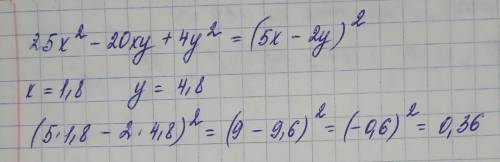 25x² - 20xy + 4y² = (5x - 2y)²
x = 1,8 y = 4,8
(5·1,8 - 2·4,8)² = (9 - 9,6)² = (-0,6)² = 0,36